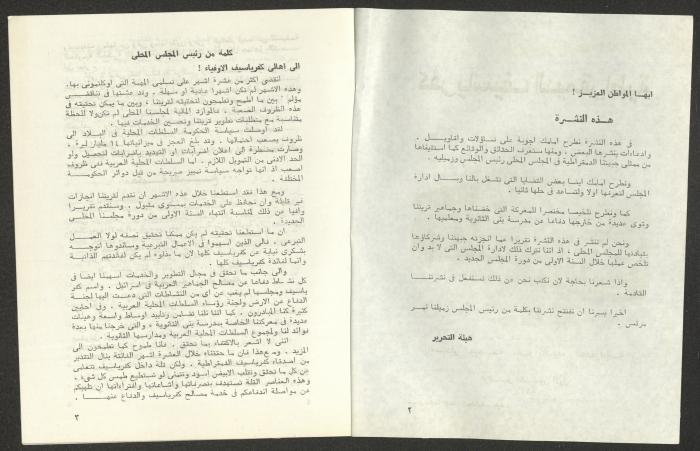 ايها المواطن العزيز !
هذه النشرة
في هذه النشرة نطرح امامك اجوبة على تساؤلات واقاويل .
وادعاءات ينشرها البعض ، ومنها ستعرف الحقائق والوقائع كما استقيناها
من ممثلي جبهتنا الديمقراطية في المجلس المحلي رئيس المجلس وزميليه .
ونطرح امامك ايضا بعض القضايا التي تشغل بالنا وبـــال ادارة
المجلس لتعرفها اولا ولتساعد في حلها ثانيا .
كما ونطرح تلخيصا مختصرا للمعركة التي خضناها وجماهير قريتنا
وقوى عديدة من خارجها دفاعا عن مدرسة يني الثانوية ومعلميها .
ونحن لم ننشر في هذه النشرة تقريرا عما انجزته جبهتنا وشركاؤها
بقيادتها للمجلس المحلي ، اذ اننا نترك ذلك لادارة المجلس التي لا بد وان
تلخص عملها خلال السنة الاولى من دورة المجلس الجديد .
واذا شعرنا بحاجة لان نكتب نحن عن ذلك فسنفعل في نشرتنـــا
القادمة .
اخيرا يسرنا ان نفتتح نشرتنا بكلمة من رئيس المجلس زميلنا نمـــر
مرقس .
هيئة التحرير
٢
كلمة من رئيس المجلس المحلي
الى اهالي كفرياسيف الاوفياء !
انقضى اكثر من عشرة اشهر على تسلمي المهمة التي اوكلتموني بها.
وهذه الاشهر لم تكن اشهرا عادية او سهلة . وقد عشتها في تناقض
مؤلم بين ما اطمح وتطمحون لتحقيقه لقريتنا ، وبين ما يمكن تحقيقه في
هذه الظروف الصعبة . فالموارد المالية لمجلسنا المحلي لم تكن ولا للحظة
متناسبة مع متطلبات تطوير قريتنا وتحسين الخدمات فيها .
لقد اوصلت سياسة الحكومة السلطات المحلية في البـــلاد الى
ظروف يصعب احتمالها . وقد بلغ العجز في ميزانياتها ١٤ مليار ليرة ،
وصارت مضطرة الى اعلان اضرابات او التهديد باضرابات لتحصيل ولو
الحد الادنى من التمويل اللازم . اما السلطات المحلية العربية ففي ظروف
اصعب اذ انها تواجه سياسة تمييز صريحة من قبل دوائر الحكومـــة
المختلفة .
ومع هذا فقد استطعنا خلال هذه الاشهر ان نقدم لقريتنا انجازات
غير قليلة وان نحافظ على الخدمات بمستوى مقبول . وسنقدم تقريـــرا
وافيا عن ذلك لمناسبة انتهاء السنة الاولى من دورة مجلسنا المحلـــي
الجديدة .
ان ما استطعنا تحقيقه لم يكن يمكننا تحقيق نصفه لولا العمـــل
التبرعي . فالى الذين اسهموا في الاعمال التبرعية وساندوها اتوجـــه
بشكري نيابة عن كفرياسيف كلها لان ما بذلوه لم يكن لفائدتهم الذاتيـة
وانما لفائدة كفرياسيف كلها .
والى جانب ما تحقق في مجال التطوير والخدمات اسهمنا ايضا في
كل نشاط دفاعا عن مصالح الجماهير العربية في اسرائيل . واسم كفر
ياسيف ومجلسها لم يغب عن اي من النشاطات التي دعت اليها لجنة
الدفاع عن الارض ولجنة رؤساء السلطات المحلية العربية . وفي احايين
كثيرة كنا المبادرون . كما اننا نلنا تضامن وتأييد اوساط واسعة وهيئات
عديدة في معركتنا الخاصة بمدرسة يني الثانوية ، والتي خرجنا منها بعدة
فوائد لنا ولمجموع السلطات المحلية العربية ومدارسها الثانوية .
انني لا اشعر بالاكتفاء بما تحقق . فانا طموح كما تطمحون الى
المزيد . ومع هذا فان ما حققناه خلال العشرة اشهر الفائتة ينال التقدير
من اصدقاء كفرياسيف الديمقراطية . ولكن قلة داخل كفرياسيف تتعامى
عن كل ما تحقق وتقلب الابيض اسود وتتمنى لو تستطيع طمس كل شيء .
وهذه العناصر القلة تستهدف بتصرفاتها واشاعاتها وافتراءاتها ان تلهيكم
عن مواصلة اندفاعكم في خدمة مصالح كفرياسيف والدفاع عنهـــا .
٣